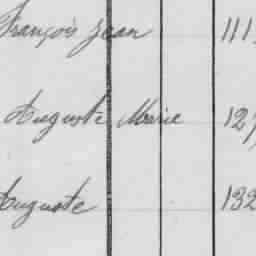 François Jean 111
Auguste Marie 127
Auguste 132